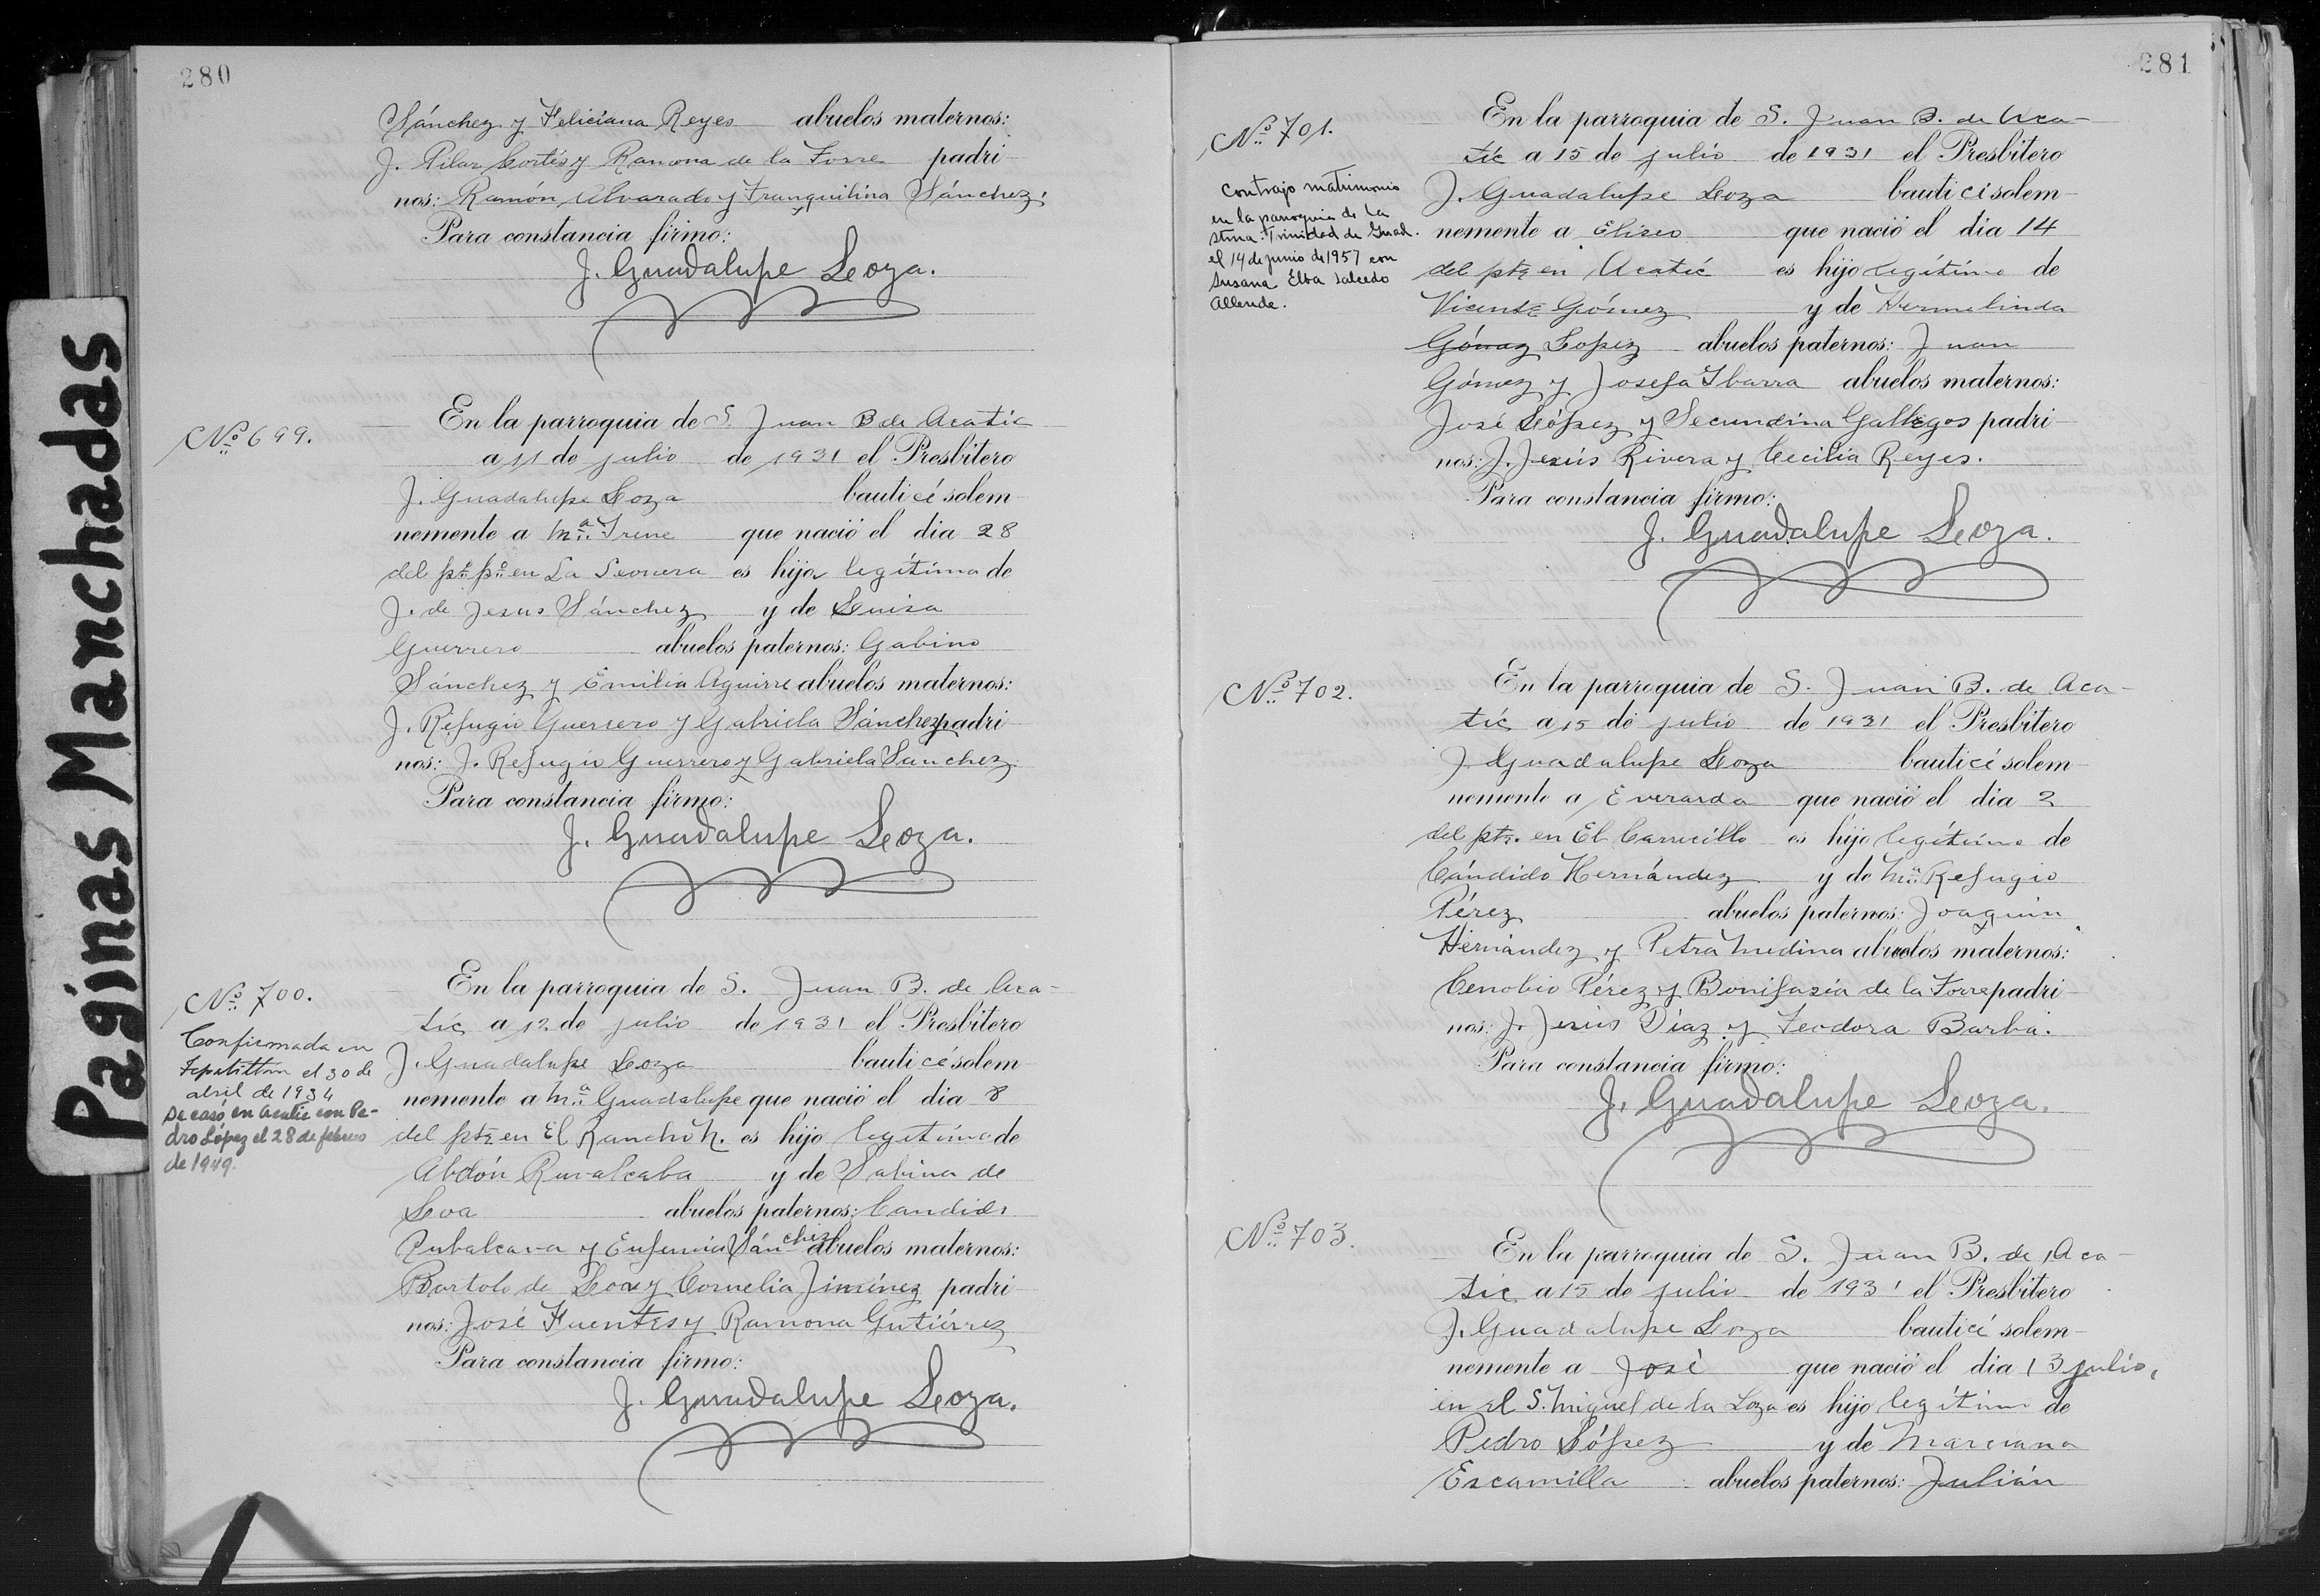 Paginas Manchadas
280
Sánchez y Feliciana Reyes abuelos maternos:
J. Pilar Cortés y Ramona de la Torre padri-
nos: Ramón Alvarado y Tranquilina Sánchez.
Para constancia firmo:
J. Guadalupe Loza.
No. 699.
En la parroquia de S. Juan B de Acatic
a 11 de julio de 1931 el Presbitero
J. Guadalupe Loza bauticé solem-
nemente a Ma. Irene que nació el dia 28
del pto. po. en La Leonera es hija legítima de
J. de Jesus Sánchez y de Luisa
Guerrero abuelos paternos: Gabino
Sánchez y Emilia Aguirre abuelos maternos:
J. Refugio Guerrero y Gabriela Sánchez padri-
nos: J. Refugio Guerrero y Gabriela Sanchez.
Para constancia firmo:
J. Guadalupe Loza.
No. 700.
Confirmada en
Tepatitlan el 30 de
abril de 1934
Se casó en Acatic con Pe-
dro López el 28 de febrero
de 1949.
En la parroquia de S. Juan B. de Aca-
tic a 12 de julio de 1931 el Presbitero
J. Guadalupe Loza bauticé solem-
nemente a Ma. Guadalupe que nació el dia 8
del pte en El Rancho N. es hijo legítima de
Abdón Ruvalcaba y de Sabina de
Loa abuelos paternos: Candido
Rubalcava y Eufemia Sánchez abuelos maternos:
Bartolo de Loa y Cornelia Jiménez padri-
nos: José Fuentes y Ramona Gutiérrez
Para constancia firmo:
J. Guadalupe Loza.
281
No. 701.
Contrajo matrimonio
en la parroquia de la
Stma. Trinidad de Guad.
el 14 de junio de 1957 con
Susana Elba Salcedo
Allende.
En la parroquia de S. Juan B. de Aca-
tic a 15 de julio de 1931 el Presbitero
J. Guadalupe Loza bauticé solem-
nemente a Eliseo que nació el dia 14
del pte en Acatic es hijo legítimo de
Vicente Gómez y de Hermelinda
Gómez Lopez abuelos paternos: Juan
Gómez y Josefa Ibarra abuelos maternos:
José López y Secundina Gallegos padri-
nos: J. Jesús Rivera y Cecilia Reyes.
Para constancia firmo:
J. Guadalupe Loza.
No. 702.
En la parroquia de S. Juan B. de Aca-
tic a 15 de julio de 1931 el Presbitero
J. Guadalupe Loza bauticé solem-
nemente a Everardo que nació el dia 2
del pte. en El Carricillo es hijo legítimo de
Cándido Hernández y de Ma. Refugio
Pérez abuelos paternos: Joaquin
Hernández y Petra Medina abuelos maternos:
Cenobio Pérez y Bonifasia de la Torre padri-
nos: J. Jesús Díaz y Teodora Barba.
Para constancia firmo:
J. Guadalupe Loza.
No. 703.
En la parroquia de S. Juan B. de Aca-
tic a 15 de julio de 1931 el Presbitero
J. Guadalupe Loza bauticé solem-
nemente a José que nació el dia 13 julio,
en el S. Miguel de la Loza es hijo legítimo de
Pedro López y de Marciana
Escamilla abuelos paternos: Julián